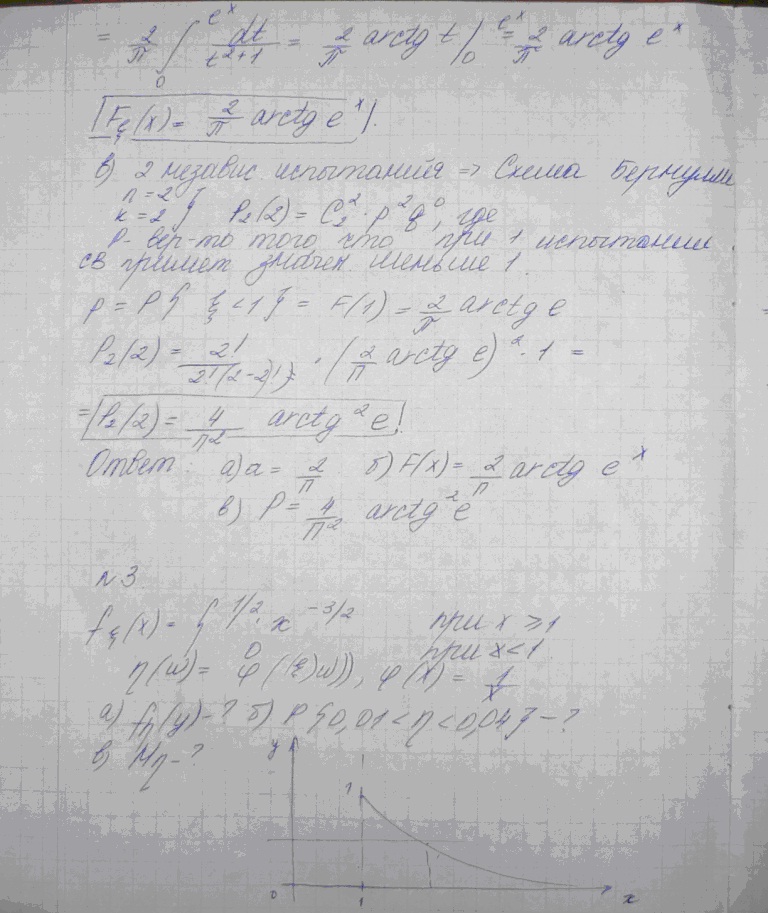 = 2/π ∫₀^{e^x} dt/(t²+1) = 2/π arctg t |₀^{e^x} = 2/π arctg e^x
F_ξ(x) = 2/π arctg e^x
в) 2 независ. испытания => Схема Бернулли
n = 2
k = 2 } P₂(2) = C₂² · p² q⁰, где
p - вер-то того что при 1 испытании
св примет значен. меньше 1.
p = P{ξ < 1} = F(1) = 2/π arctg e
P₂(2) = 2!/(2!(2-2)!) · (2/π arctg e)² · 1 =
= P₂(2) = 4/π² arctg² e
Ответ: а) a = 2/π б) F(x) = 2/π arctg e^x
в) P = 4/π² arctg² e
№3
f_ξ(x) = { 1/2 · x^{-3/2} при x ≥ 1
0 при x < 1
η(ω) = φ(ξ(ω)), φ(x) = 1/x
а) f_η(y) - ? б) P{0,01 < η < 0,04} - ?
в) Mη - ?
y
1
0 1 x